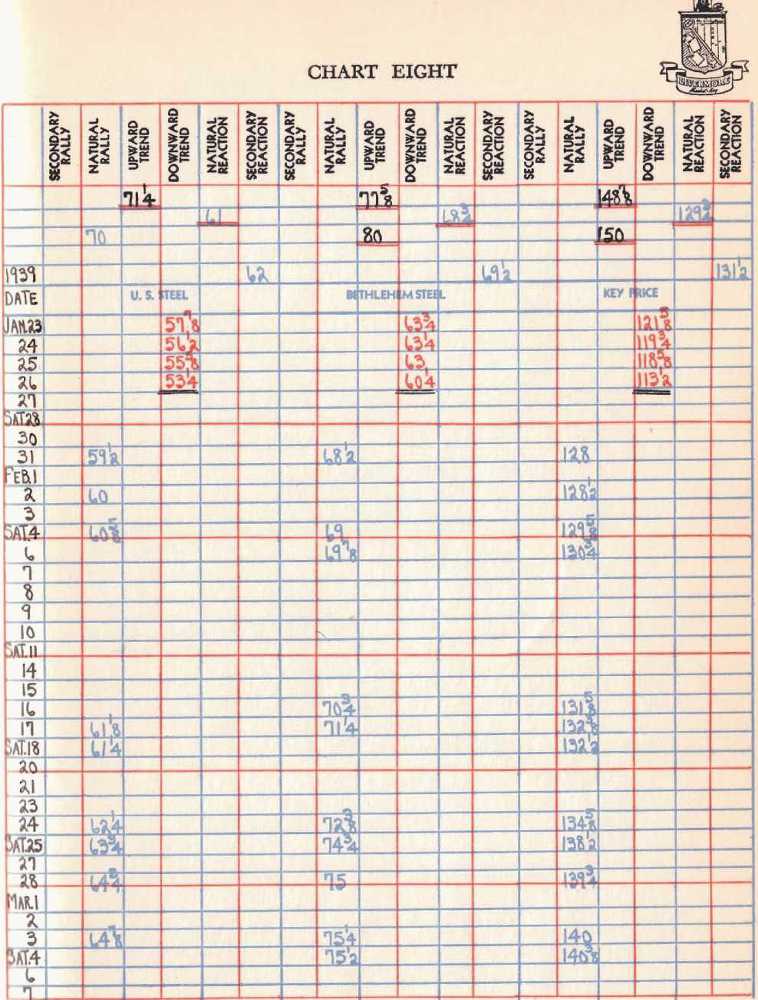 LIVERMORE
CHART EIGHT
SECONDARY RALLY NATURAL RALLY UPWARD TREND DOWNWARD TREND NATURAL REACTION SECONDARY REACTION SECONDARY RALLY NATURAL RALLY UPWARD TREND DOWNWARD TREND NATURAL REACTION SECONDARY REACTION SECONDARY RALLY NATURAL RALLY UPWARD TREND DOWNWARD TREND NATURAL REACTION SECONDARY REACTION
71 1/4 77 5/8 148 7/8
61 129 3/4
70 80 150
1939 62 69 1/2 131 1/2
DATE U. S. STEEL BETHLEHEM STEEL KEY PRICE
JAN.23 57 7/8 63 3/4 121 5/8
24 56 1/2 63 1/4 119 3/4
25 55 5/8 63 118 5/8
26 53 1/4 60 1/4 113 1/2
27
SAT.28
30
31 59 1/2 68 1/2 128
FEB.1
2 60 128 1/2
3
SAT.4 60 5/8 69 129 5/8
6 69 7/8 130 3/4
7
8
9
10
SAT.11
14
15
16 70 3/4 131 5/8
17 61 1/8 71 1/4 132 3/8
SAT.18 61 1/4 132 1/2
20
21
23
24 62 1/4 72 3/8 134 5/8
SAT.25 63 3/4 74 3/4 138 1/2
27
28 64 3/4 75 139 3/4
MAR.1
2
3 64 7/8 75 1/4 140
SAT.4 75 1/2 140 3/8
6
7